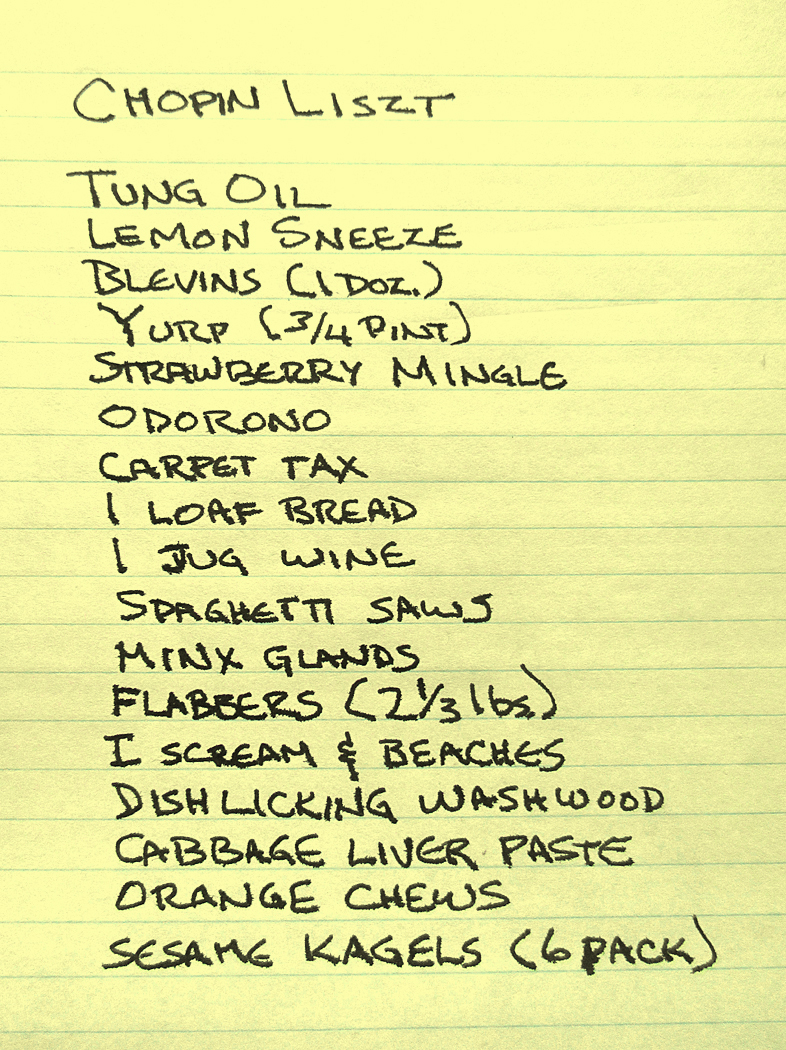 CHOPIN LISZT
TUNG OIL
LEMON SNEEZE
BLEVINS (1 DOZ.)
YURP (3/4 PINT)
STRAWBERRY MINGLE
ODORONO
CARPET TAX
1 LOAF BREAD
1 JUG WINE
SPAGHETTI SAWS
MINX GLANDS
FLABBERS (2 1/3 lbs.)
I SCREAM & BEACHES
DISH LICKING WASHWOOD
CABBAGE LIVER PASTE
ORANGE CHEWS
SESAME KAGELS (6 PACK)